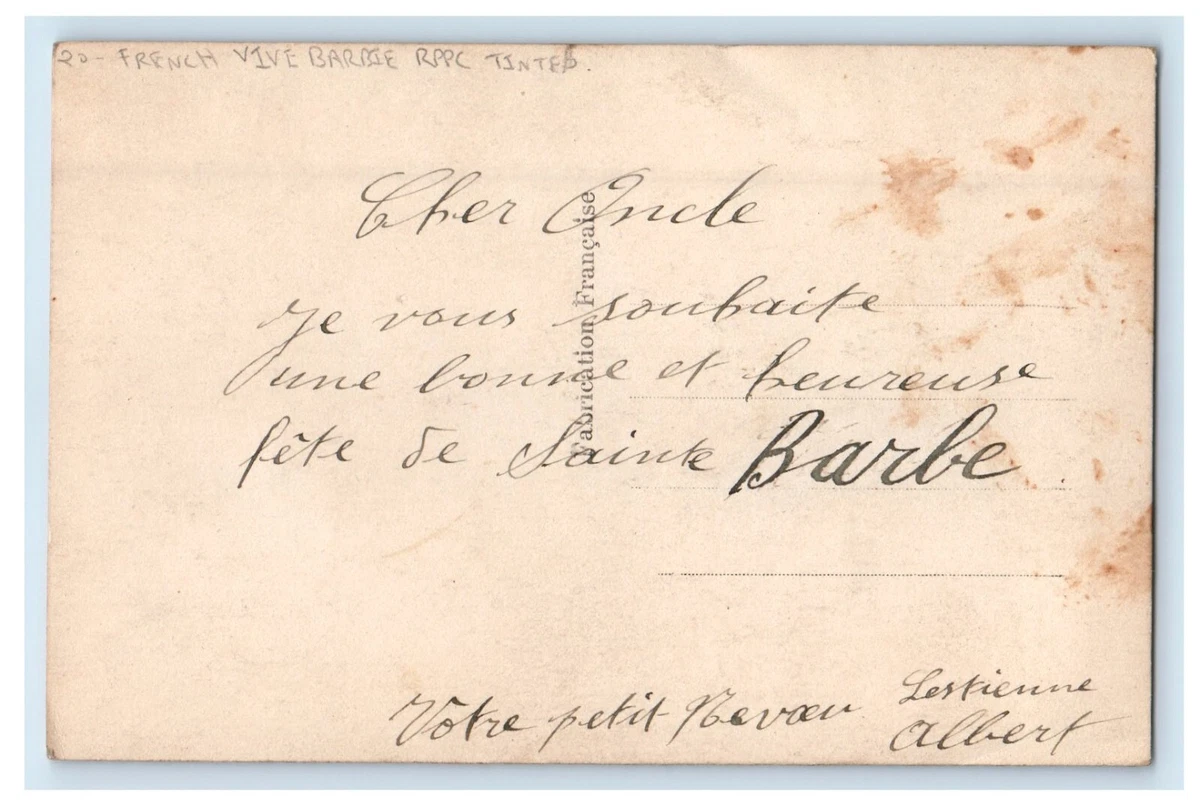 20- FRENCH VIVE BARBIE RPPC TINTED.
Cher Oncle
Je vous souhaite
une bonne et heureuse
fête de Sainte Barbe
Fabrication Française
Votre petit Nevœu Lestienne
Albert